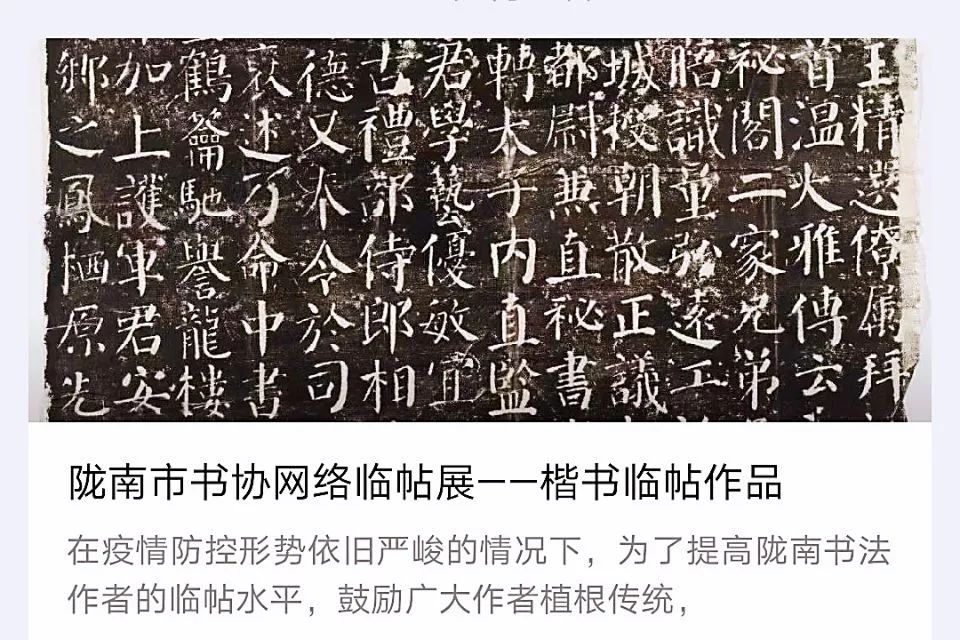 王精選僚属拜
首温大雅傳云
祕閣二家兄弟
晤識量弘遠工
城校朝散正議
都尉兼直秘書
轉太子内直監
君學藝優敏宜
古禮部侍郎相
德又不令於司
哀述乃命中書
鶴籥馳譽龍樓
加上護軍君安
鄉之鳳栖原先
陇南市书协网络临帖展——楷书临帖作品
在疫情防控形势依旧严峻的情况下，为了提高陇南书法
作者的临帖水平，鼓励广大作者植根传统，